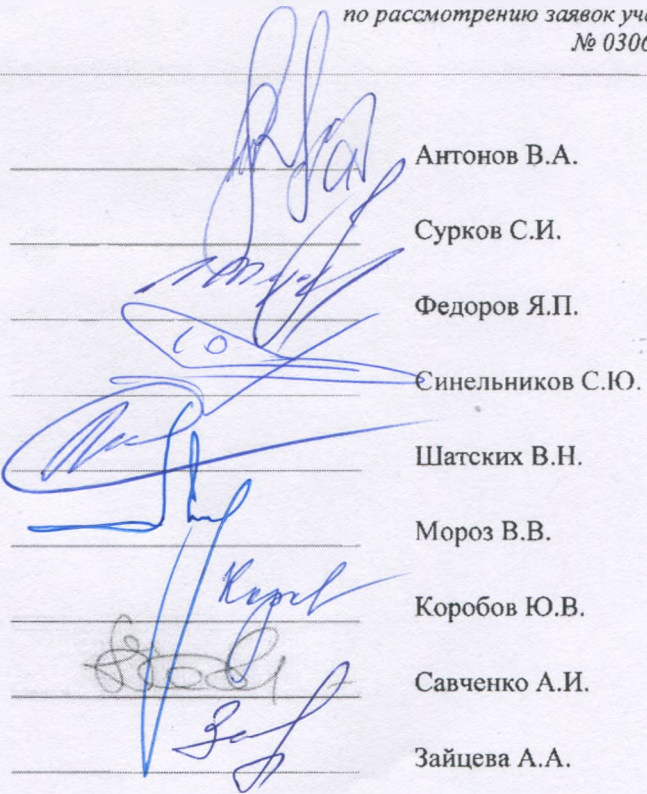 по рассмотрению заявок уча
№ 0306
Антонов В.А.
Сурков С.И.
Федоров Я.П.
Синельников С.Ю.
Шатских В.Н.
Мороз В.В.
Коробов Ю.В.
Савченко А.И.
Зайцева А.А.